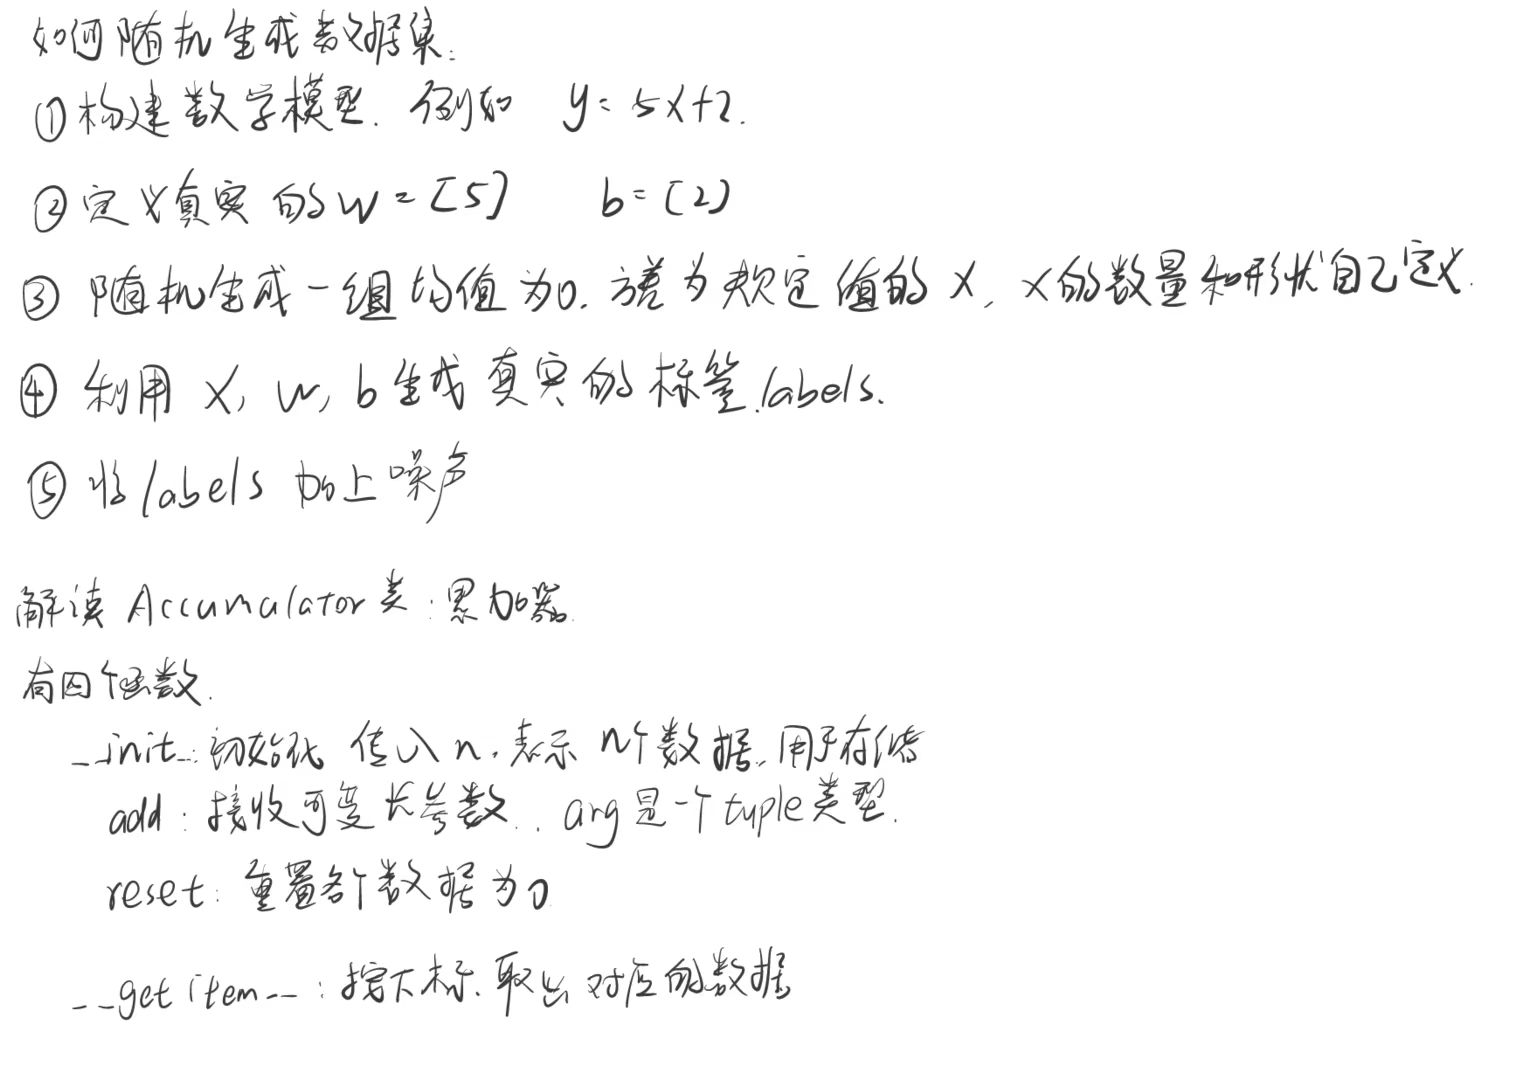 如何随机生成数据集:
①构建数学模型. 例如 y=5x+2.
②定义真实的w=[5] b=[2]
③ 随机生成一组均值为0.方差为规定值的X, X的数量和形状自己定义.
④ 利用 X, w, b生成真实的标签.labels.
⑤ 将labels 加上噪声
解读 Accumulator类:累加器.
有四个函数.
__init__:初始化 传入n,表示 n个数据.用于存储
add:接收可变长参数. arg是一个tuple类型.
reset:重置各个数据为0
__getitem__:按下标.取出对应的数据